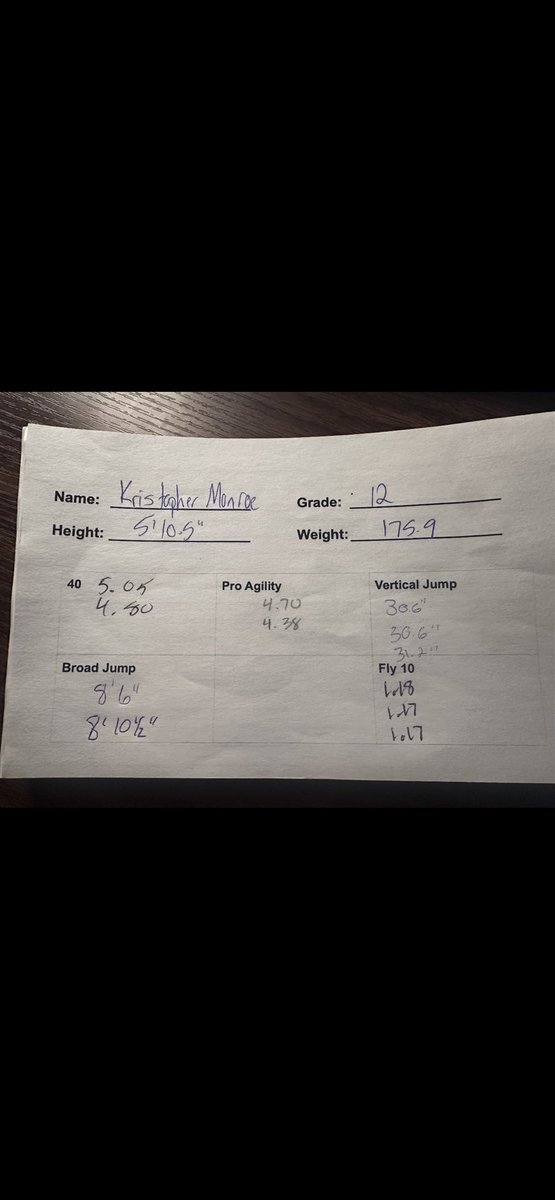 Name: Kristopher Monroe Grade: 12
Height: 5'10.5" Weight: 175.9
40 5.05 Pro Agility Vertical Jump
4.80 4.70 30.6"
4.38 30.6"
31.2"
Broad Jump Fly 10
8'6" 1.18
8'10½" 1.17
1.17